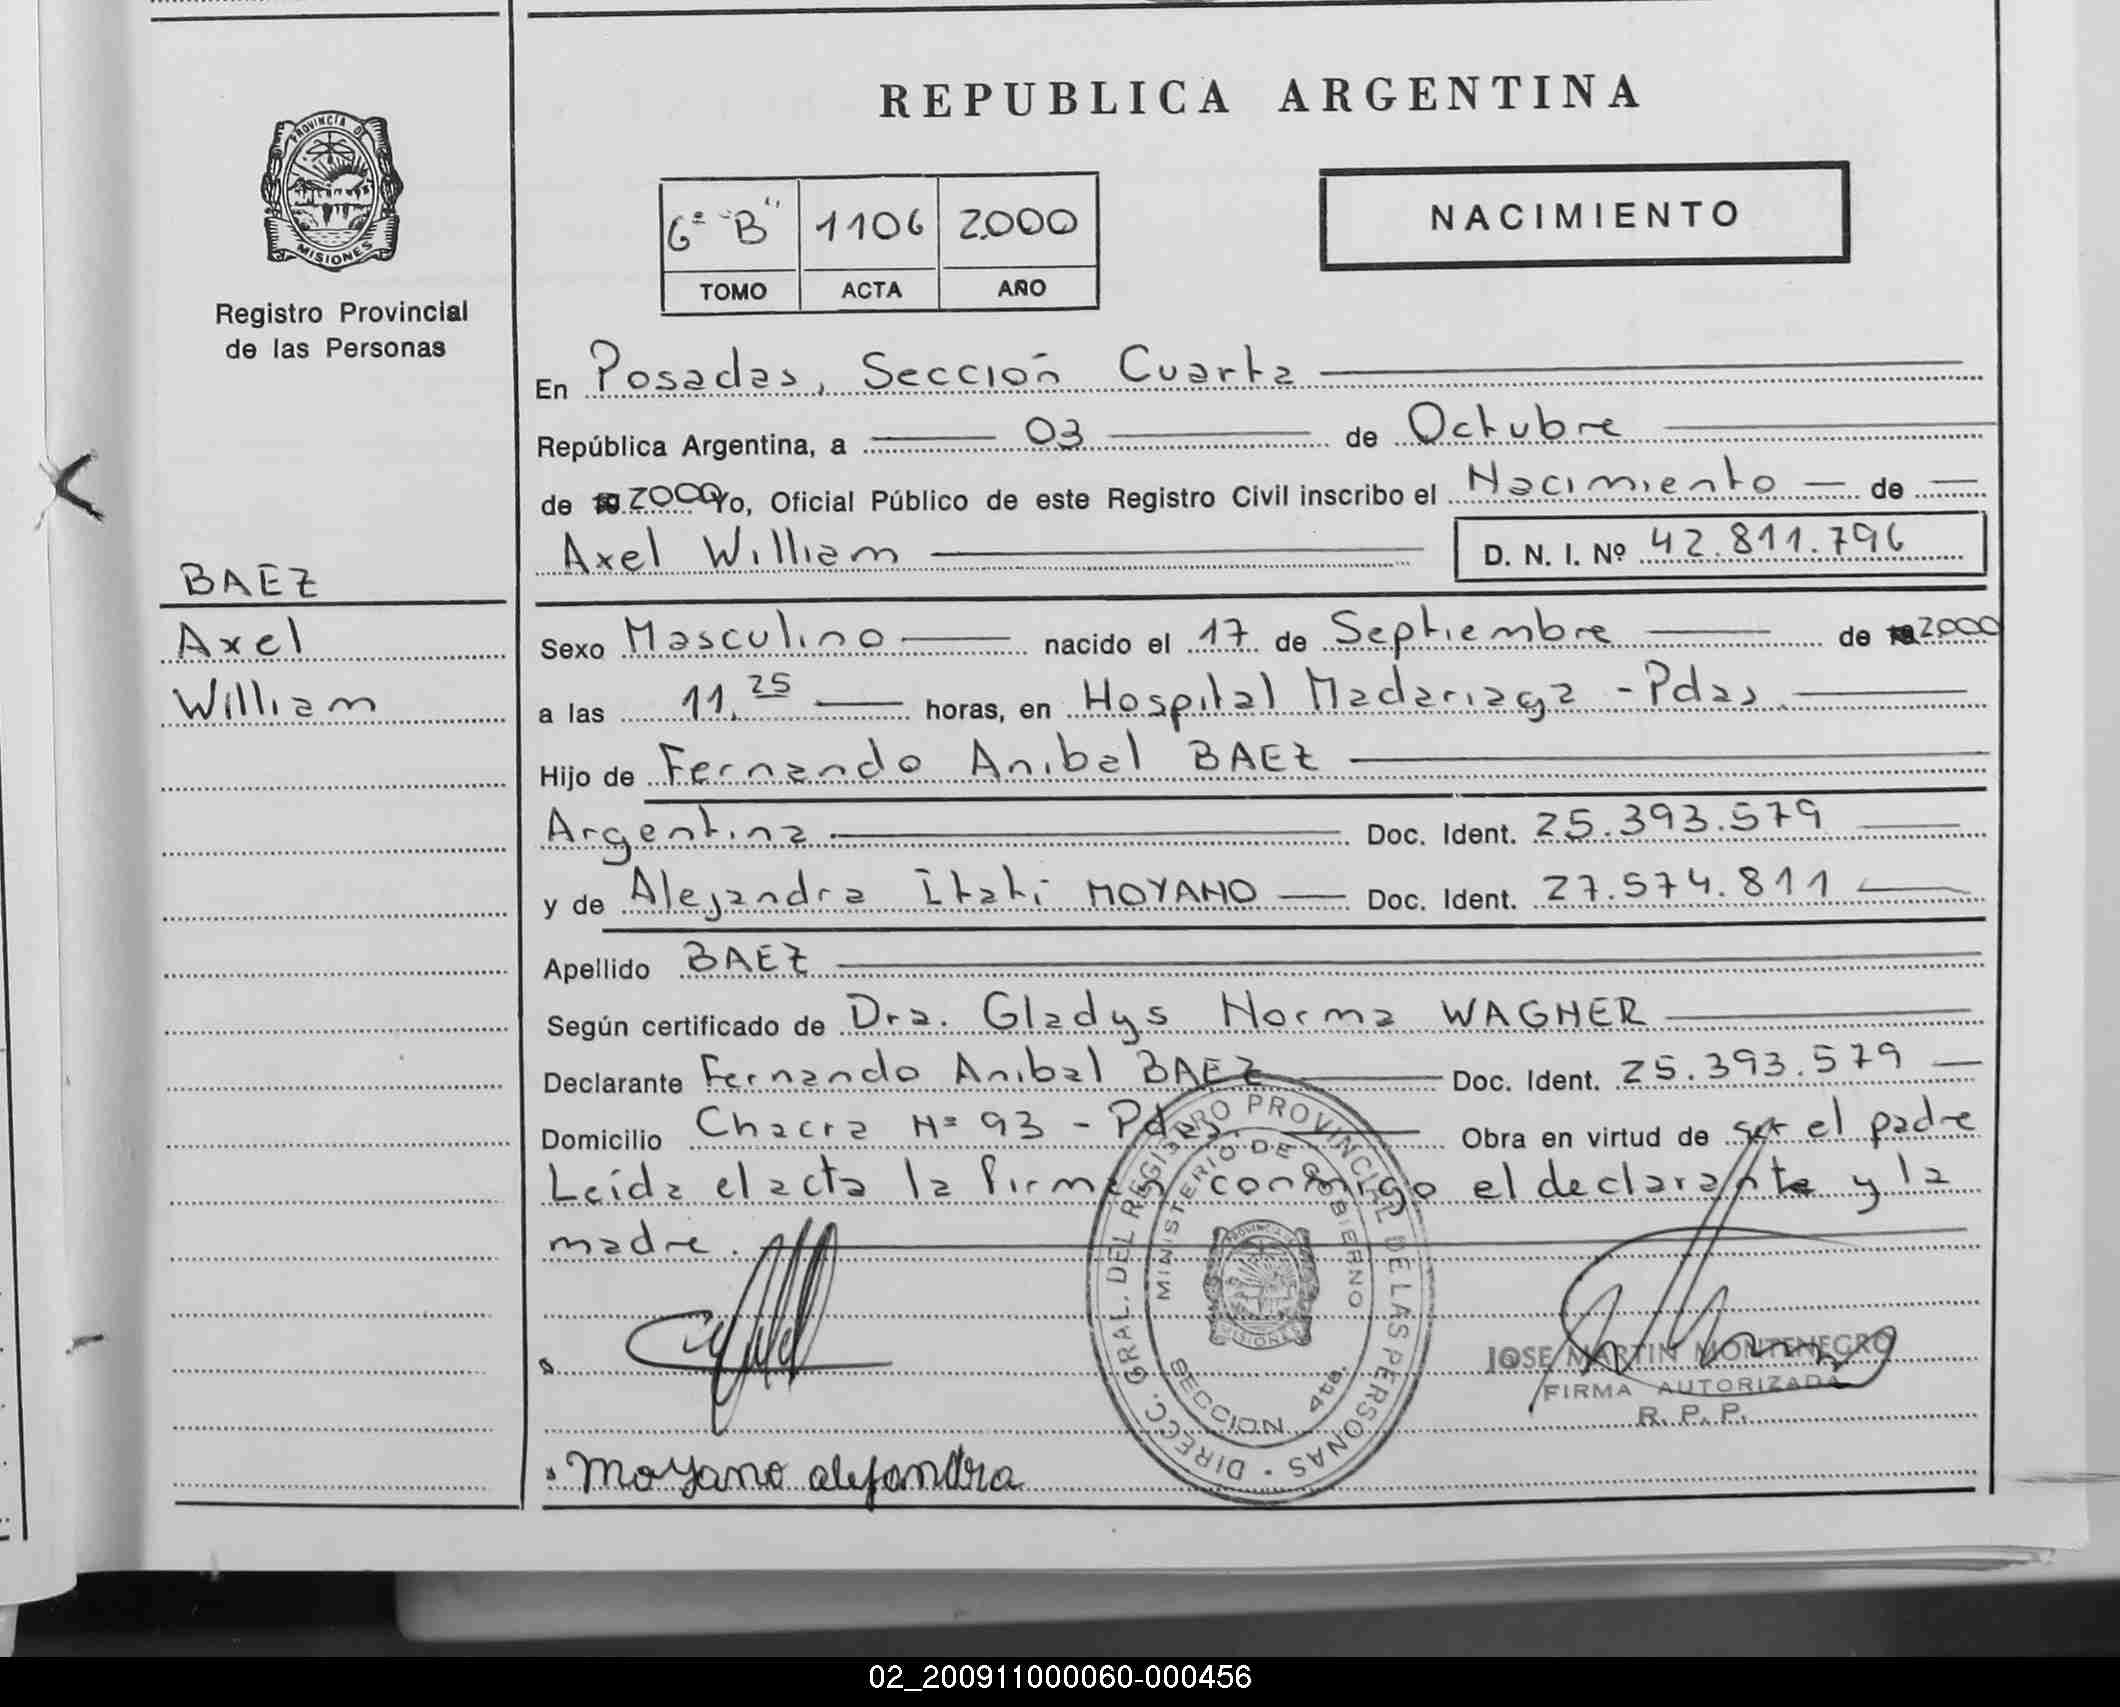 REPUBLICA ARGENTINA
PROVINCIA DE
MISIONES
Registro Provincial
de las Personas
6º "B" 1106 2000
TOMO ACTA AÑO
NACIMIENTO
En Posadas, Sección Cuarta
República Argentina, a 03 de Octubre
de 2000 Yo, Oficial Público de este Registro Civil inscribo el Nacimiento de
Axel William D. N. I. Nº 42.811.796
BAEZ
Axel
William
Sexo Masculino nacido el 17 de Septiembre de 2000
a las 11,25 horas, en Hospital Madariaga - Pdas.
Hijo de Fernando Anibal BAEZ
Argentina Doc. Ident. 25.393.579
y de Alejandra Itati MOYANO Doc. Ident. 27.574.811
Apellido BAEZ
Según certificado de Dra. Gladys Norma WAGNER
Declarante Fernando Anibal BAEZ Doc. Ident. 25.393.579
Domicilio Chacra Nº 93 - Pdas. Obra en virtud de ser el padre
Leída el acta la firman conmigo el declarante y la
madre.
DIRECC. GRAL. DEL REGISTRO PROVINCIAL DE LAS PERSONAS
MINISTERIO DE GOBIERNO
PROVINCIA DE
MISIONES
SECCION 4ta.
JOSE MARTIN MONTENEGRO
FIRMA AUTORIZADA
R. P. P.
Moyano alejandra
02_200911000060-000456